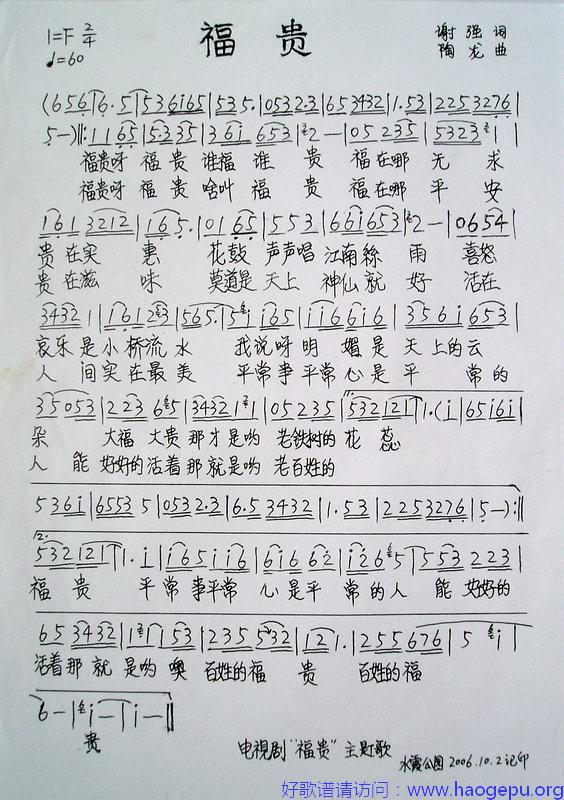 1=F 2/4 福 贵 谢强 词
♩=60 陶龙 曲
(6 5 6 | 6· 5 | 5 3 6 i 6 5 | 5 3 5· | 0 5 3 2·3 | 6 5 3 4 3 2 | 1·5 3 | 2 2 5 3 2 7 6 |
5 -) ‖: 1 1 6 5 | 5·3 3 5 | 3 6 i 6 5 3 | 2 — | 0 5 2 3 5 | 5 3 2 3 1 |
福贵呀 福 贵 谁福 谁 贵 福在哪 无 求
福贵呀 福 贵 啥叫 福 贵 福在哪 平 安
1 6 1 3 2 1 2 | 1 6 5· | 0 1 6 5 | 5 5 3 | 6 6 i 6 5 3 | 2 — | 0 6 5 4 |
贵 在实 惠 花鼓 声声唱 江南絲 雨 喜怒
贵 在滋 味 莫道是 天上 神仙就 好 活在
3 4 3 2 1 | 1 6 1 2 3 | 5 6 5· | 5 i 6 5 | i i 6 6 i 6 | 3 5 6 i 6 5 3 |
哀乐是小桥流 水 我说呀明 媚是天上的云
人 间实在最美 平常事平常心是平 常的
3 5 0 5 3 | 2 2 3 6 5 | 3 4 3 2 1 1 | 0 5 2 3 5 | 5 3 2 1 2 1 | 1·(i | 6 5 i 6 i |
朵 大福 大贵 那才是哟 老铁树的 花 蕊
人 能 好好的活着那就是哟 老百姓的
5 3 6 i | 6 5 5 3 5 | 0 5 3 2·3 | 6·5 3 4 3 2 | 1·5 3 | 2 2 5 3 2 7 6 | 5 -) :‖
2.
5 3 2 1 2 1 | 1· i | i 6 5 i i 6 | 6 i 6 6 2 | i 2 6 5 | 5 5 3 2 2 3 |
福 贵 平 常 事平常 心是平 常的人 能 好好的
6 5 3 4 3 2 | 1 1 5 3 | 2 3 5 5 3 2 | 1 2 1· | 2 5 5 6 7 6 | 5 i |
活着那就 是哟 噢 百姓的福 贵 百姓的福
6 — | i — | i — ‖
贵
电視剧“福贵”主题歌
水霞公园 2006.10.2 记印
好歌谱请访问：www.haogepu.org